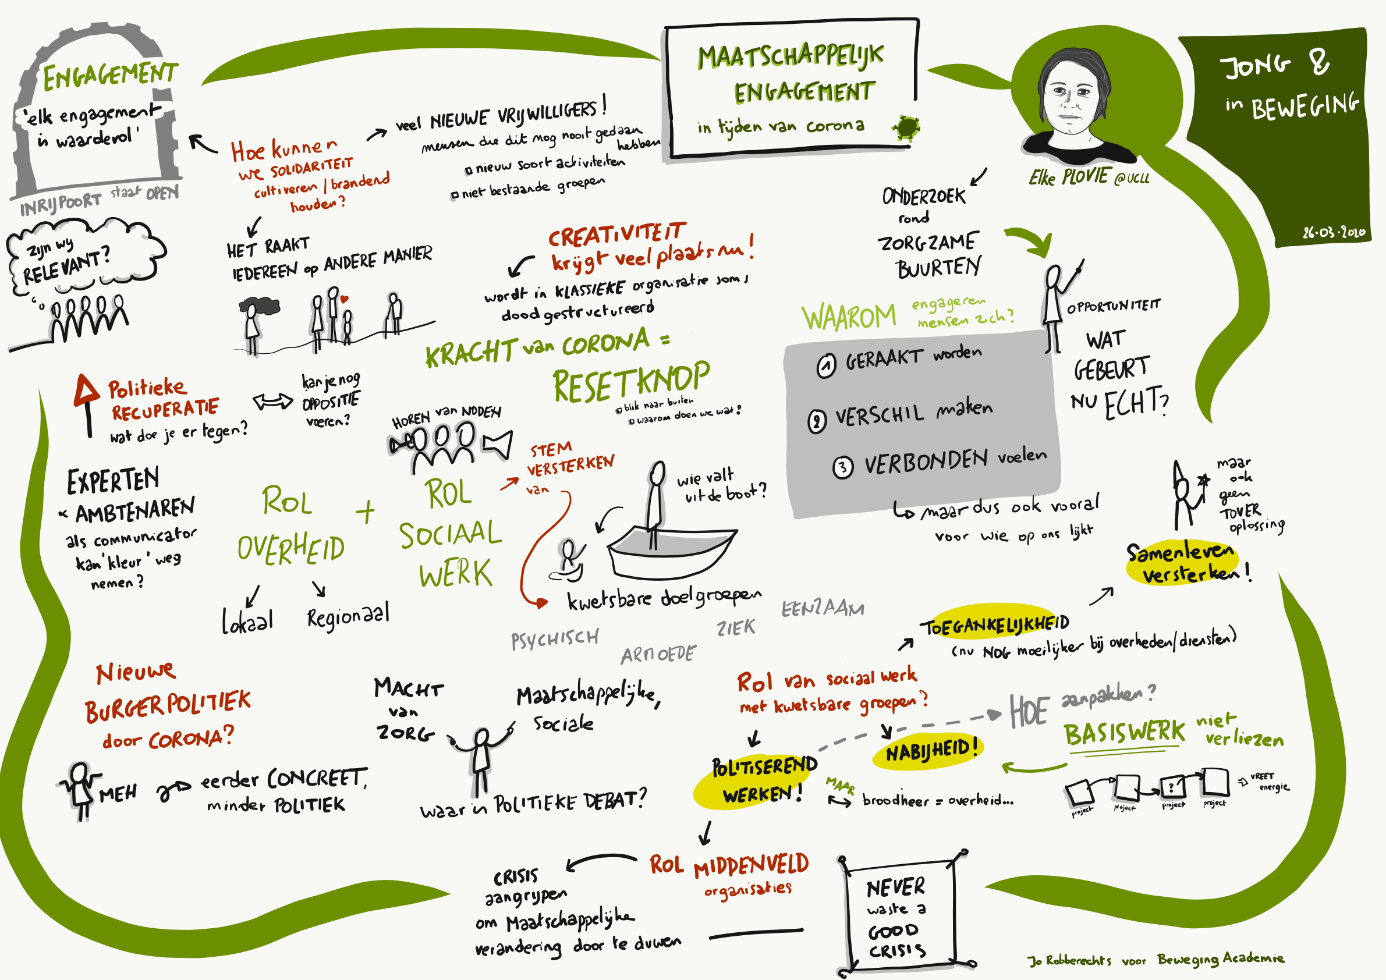 MAATSCHAPPELIJK
ENGAGEMENT
in tijden van corona
Elke PLOVIE @UCLL
JONG &
in BEWEGING
26.03.2020
ENGAGEMENT
'elk engagement
is waardevol'
INRIJPOORT staat OPEN
zijn wij
RELEVANT?
Hoe kunnen
we SOLIDARITEIT
cultiveren / brandend
houden?
veel NIEUWE VRIJWILLIGERS!
mensen die dit nog nooit gedaan
hebben
nieuw soort activiteiten
niet bestaande groepen
HET RAAKT
IEDEREEN op ANDERE MANIER
CREATIVITEIT
krijgt veel plaats nu!
wordt in KLASSIEKE organisatie soms
dood gestructureerd
KRACHT van CORONA =
RESETKNOP
blik naar buiten
waarom doen we wat?
ONDERZOEK
rond
ZORGZAME
BUURTEN
OPPORTUNITEIT
WAT
GEBEURT
NU ECHT?
WAAROM engageren
mensen zich?
1 GERAAKT worden
2 VERSCHIL maken
3 VERBONDEN voelen
maar dus ook vooral
voor wie op ons lijkt
Politieke
RECUPERATIE
wat doe je er tegen?
kan je nog
OPPOSITIE
voeren?
HOREN van NODEN
EXPERTEN
& AMBTENAREN
als communicator
kan 'kleur' weg
nemen?
ROL
OVERHEID
+
ROL
SOCIAAL
WERK
lokaal
Regionaal
STEM
VERSTERKEN
van
wie valt
uit de boot?
kwetsbare doelgroepen
PSYCHISCH
ARMOEDE
ZIEK
EENZAAM
maar
ook
geen
TOVER
oplossing
Samenleven
versterken!
TOEGANKELIJKHEID
(nu NOG moeilijker bij overheden/diensten)
Rol van sociaal werk
met kwetsbare groepen?
NABIJHEID!
POLITISEREND
WERKEN!
MAAR
broodheer = overheid...
HOE aanpakken?
BASISWERK niet
verliezen
project
project
?
project
project
VREET
energie
Nieuwe
BURGERPOLITIEK
door CORONA?
MEH
eerder CONCREET,
minder POLITIEK
MACHT
van
ZORG
Maatschappelijke,
sociale
waar in POLITIEKE DEBAT?
ROL MIDDENVELD
organisaties
CRISIS
aangrijpen
om Maatschappelijke
verandering door te duwen
NEVER
waste a
GOOD
CRISIS
Jo Robberechts voor Beweging Academie